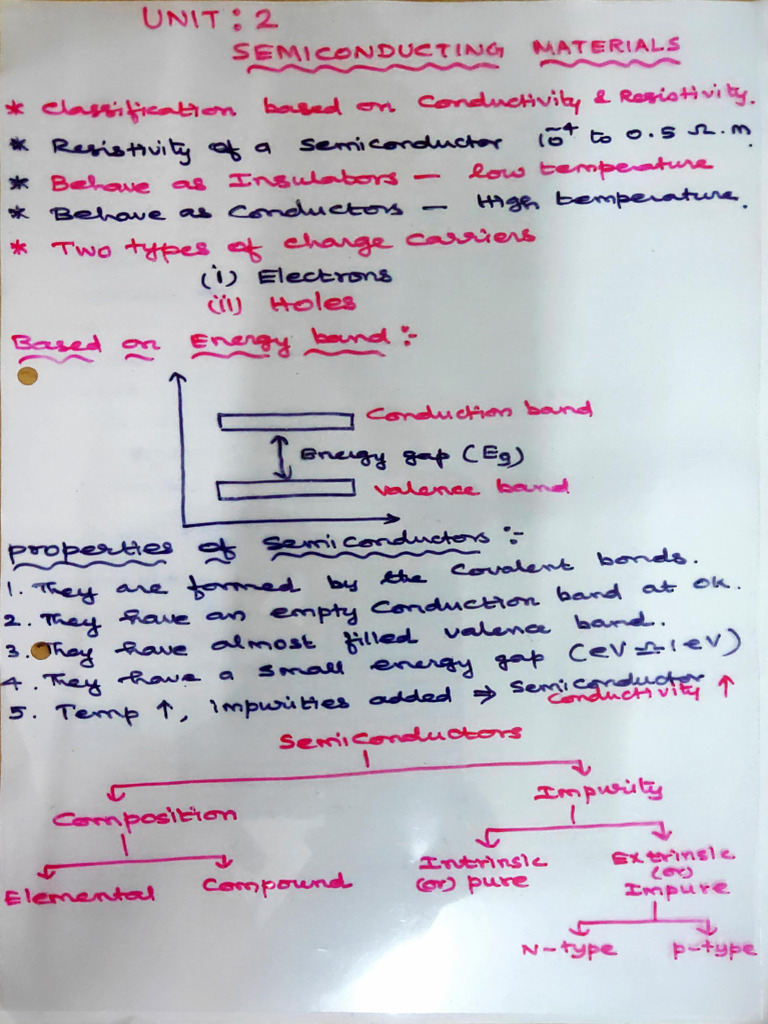 UNIT : 2
SEMICONDUCTING MATERIALS
* Classification based on Conductivity & Resistivity.
* Resistivity of a Semiconductor 10⁻⁴ to 0.5 Ω.m.
* Behave as Insulators – low temperature
* Behave as Conductors – High temperature.
* Two types of charge carriers
(i) Electrons
(ii) Holes
Based on Energy band :-
Conduction band
Energy gap (Eg)
valence band
properties of Semiconductors :-
1. They are formed by the Covalent bonds.
2. They have an empty Conduction band at 0K.
3. They have almost filled valence band.
4. They have a small energy gap (eV ≃ 1eV)
5. Temp ↑, impurities added ⇒ Semiconductor
Conductivity ↑
Semiconductors
Composition Impurity
Elemental Compound Intrinsic (or) pure Extrinsic (or) Impure
N-type p-type